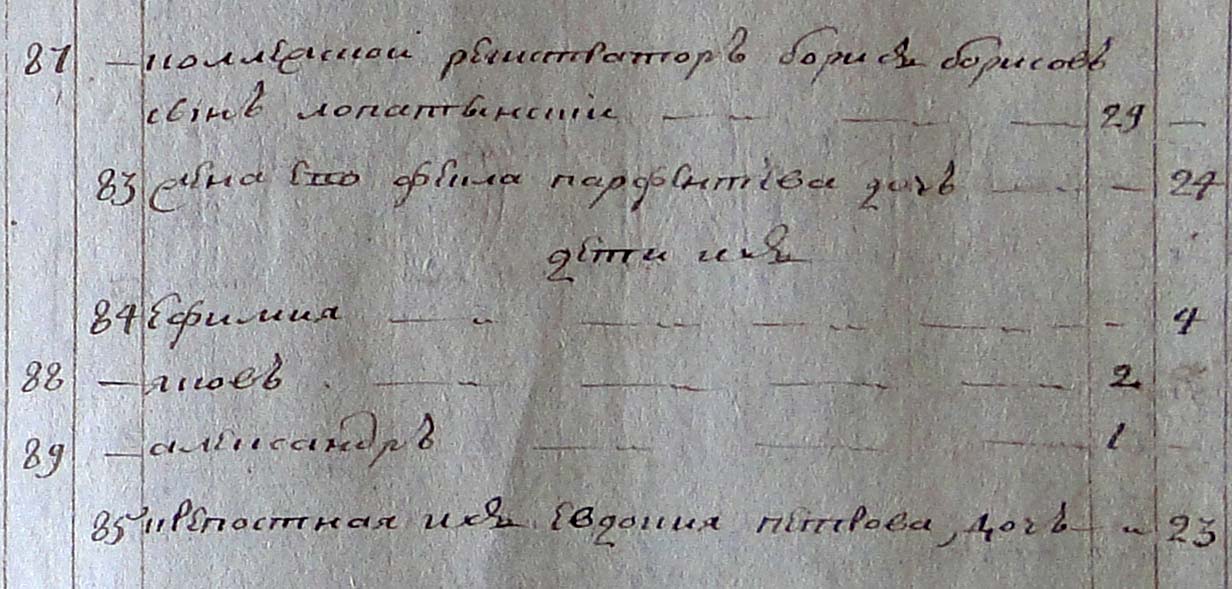 87 — коллежской регистраторъ борисъ борисовъ
сынъ лопатынский — — — 29 —
83 жена его фекла парфентіева дочь — — 24
дети ихъ
84 Ефимия — — — — — 4
88 — яковъ — — — — 2
89 — александръ — — — 1 —
85 крепостная ихъ Евдокия петрова, дочь — „ 23